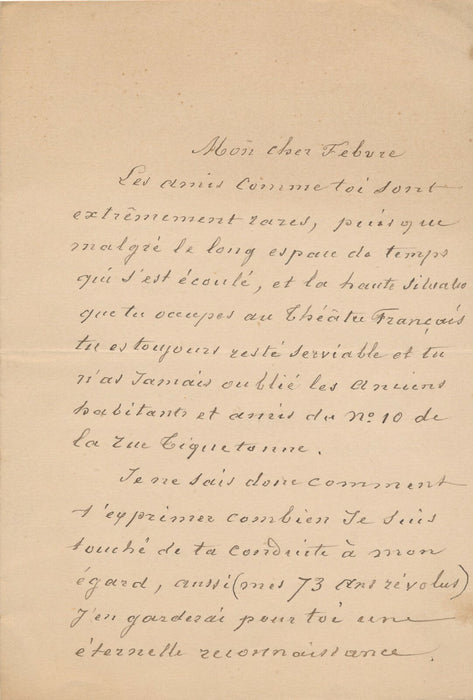 Mon cher Febvre
Les amis comme toi sont
extrêmement rares, puisque
malgré le long espace de temps
qui s'est écoulé, et la haute situation
que tu occupes au Théâtre Français
tu es toujours resté serviable et tu
n'as Jamais oublié les Anciens
habitants et amis du No 10 de
la rue Tiquetonne.
Je ne sais donc comment
t'exprimer combien Je suis
touché de ta conduite à mon
égard, aussi (mes 73 Ans révolus)
J'en garderai pour toi une
éternelle reconnaissance.